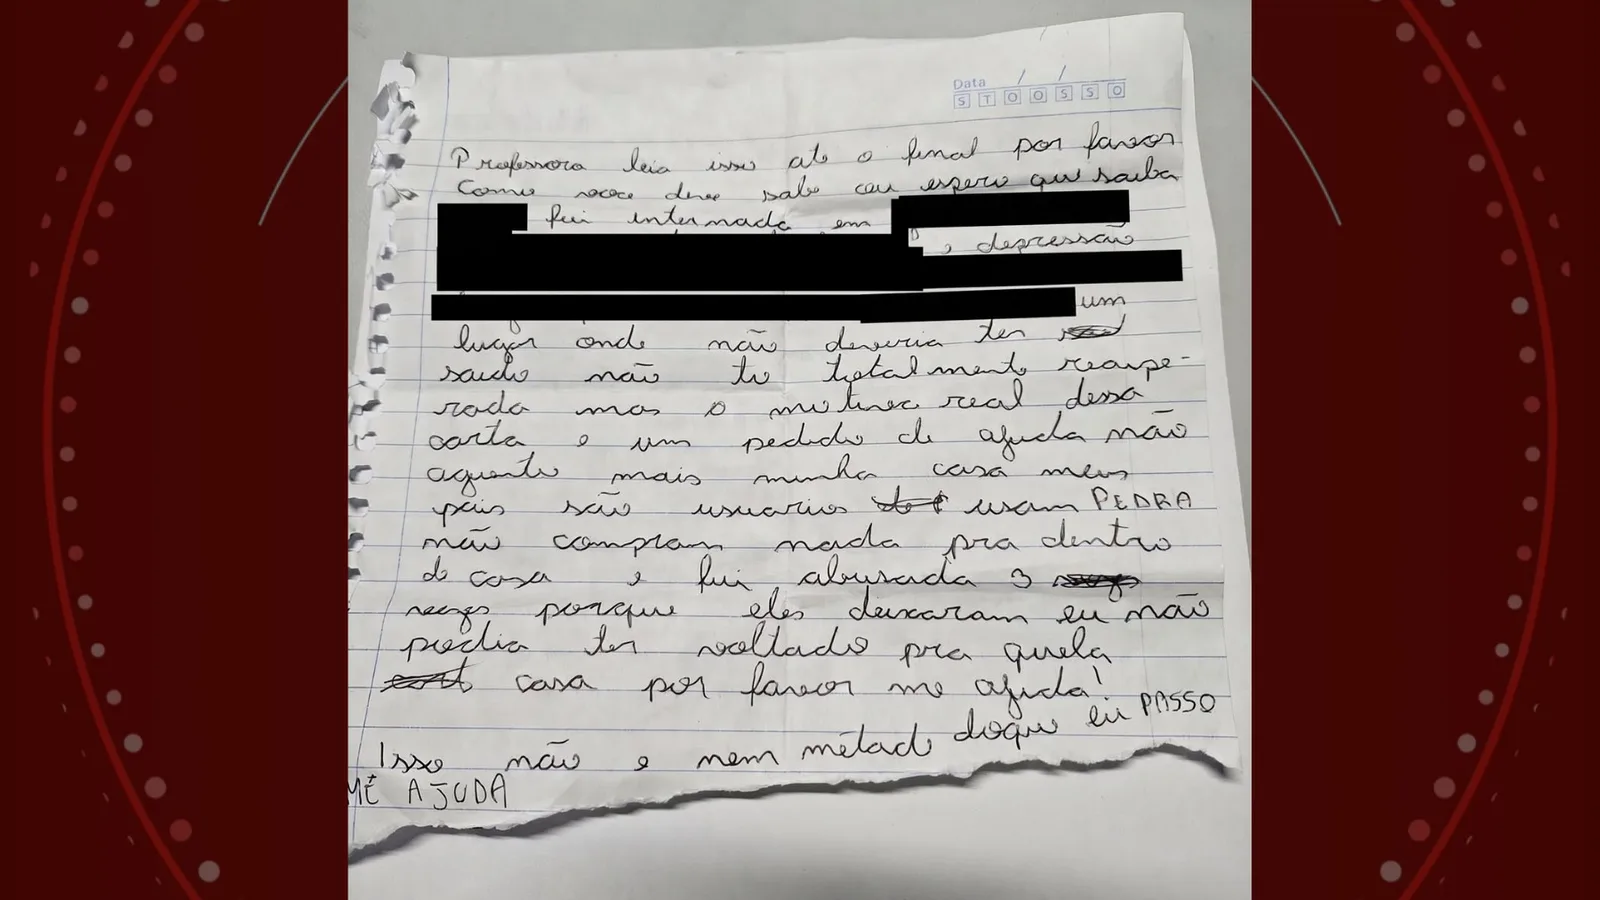 Data / /
S T Q Q S S D
Professora leia isso até o final por favor
Como voce deve sabe eu espero que saiba
fui internada em
, depressão
um
lugar onde não deveria ter
saido não to totalmente recupe-
rada mas o motivo real dessa
carta e um pedido de ajuda não
aguento mais minha casa meus
pais são usuarios usam PEDRA
não compram nada pra dentro
de casa e fui abusada 3
vezes porque eles deixaram eu não
podia ter voltado pra quela
casa por favor me ajuda!
Isso não e nem metade doque eu PASSO
ME AJUDA